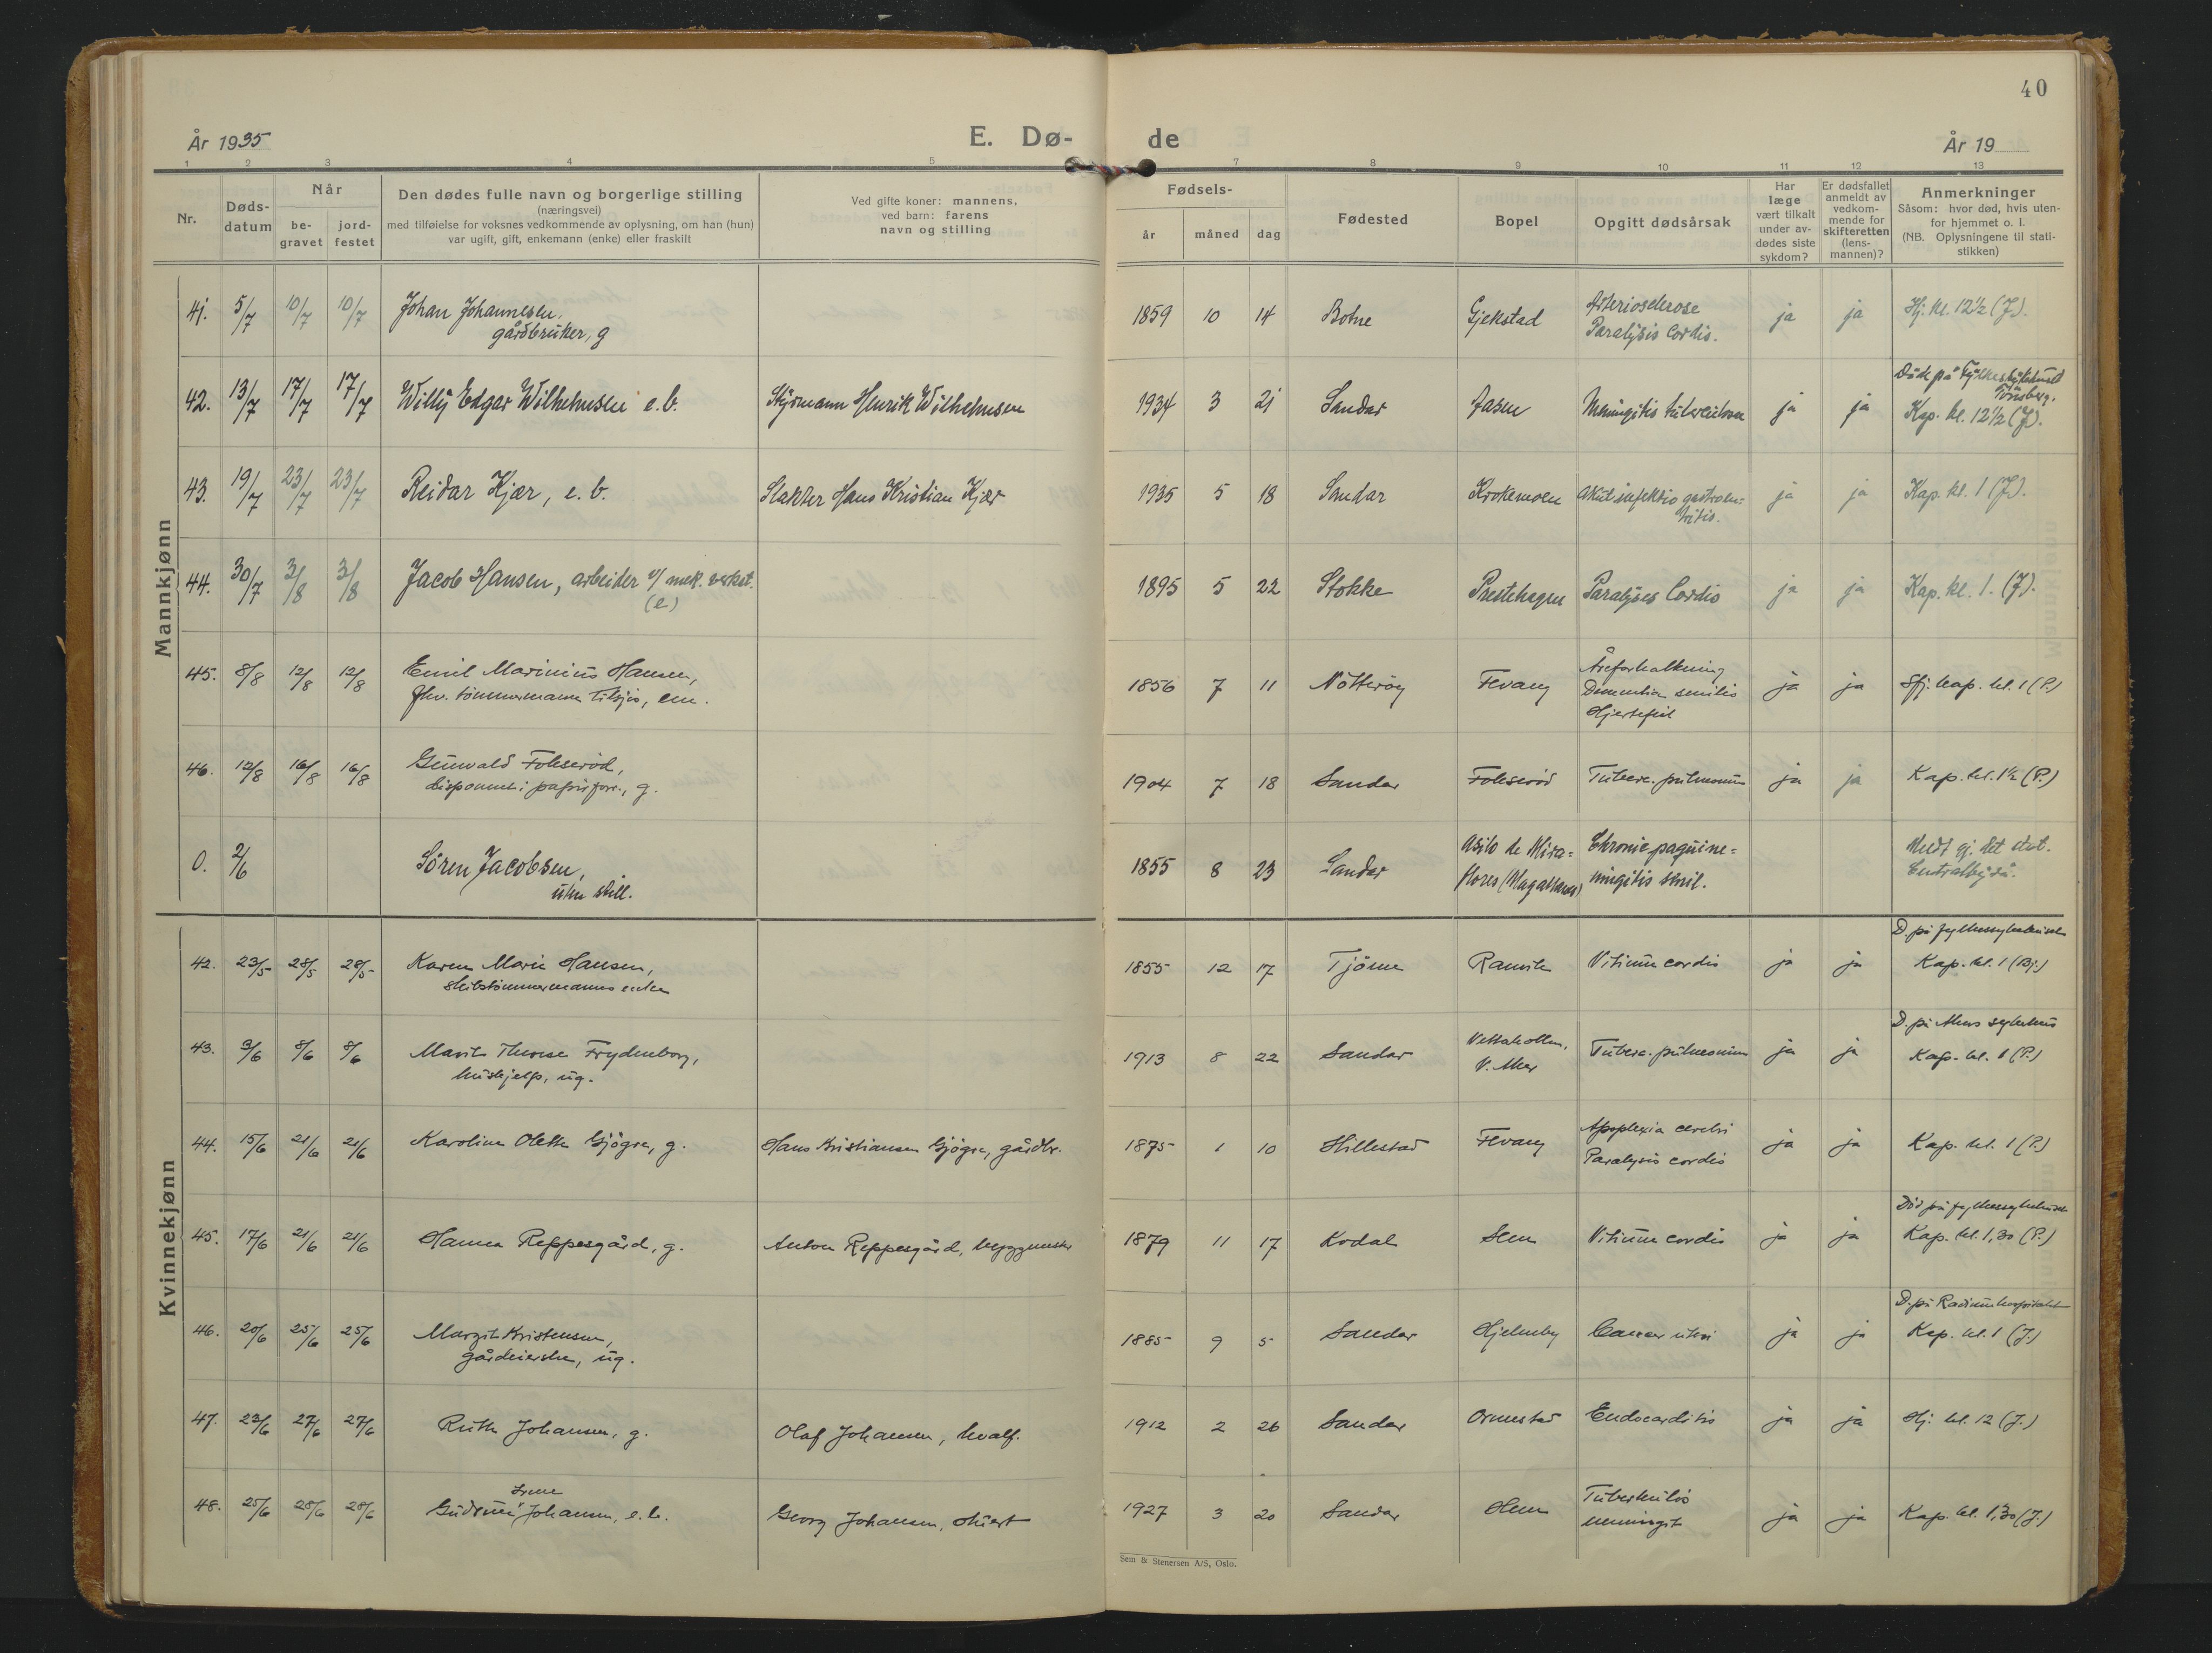 40
År 1935
E. Dø-
de
År 19
1 2 3 4 5
7 8 9 10 11 12 13
Nr.
Døds-
datum
Når
be-
gravet
jord-
festet
Den dødes fulle navn og borgerlige stilling
(næringsvei)
med tilføielse for voksnes vedkommende av oplysning, om han (hun)
var ugift, gift, enkemann (enke) eller fraskilt
Ved gifte koner: mannens,
ved barn: farens
navn og stilling
Fødsels-
år måned dag
Fødested
Bopel
Opgitt dødsårsak
Har
læge
vært tilkalt
under av-
dødes siste
sykdom?
Er dødsfallet
anmeldt av
vedkom-
mende for
skifteretten
(lens-
mannen)?
Anmerkninger
Såsom: hvor død, hvis uten-
for hjemmet o. l.
(NB. Oplysningene til stati-
stikken)
Mannkjønn
41. 5/7 10/7 10/7 Johan Johannesen,
gårdbruker, g
1859 10 14 Botne Gjekstad Arteriosclerose
Paralysis Cordis.
ja ja Hj. kl. 12½ (J).
42. 13/7 17/7 17/7 Willy Edgar Wilhelmsen e.b. Styrmann Henrik Wilhelmsen
1934 3 21 Sandar Jasen Meningitis ja ja
Døde på Fylkessykehuset
Tønsberg.
Kap. kl. 12½ (J).
43. 19/7 23/7 23/7 Reidar Kjær, e.b. Slakter Hans Kristian Kjær
1935 5 18 Sandar Krokemoen Akut infektio gastroen-
tritis.
ja ja Kap. kl. 1 (J).
44. 30/7 3/8 3/8 Jacob Hansen, arbeider v/ mek. verkst.
(e)
1895 5 22 Stokke Prestehagen Paralyses Cordis ja ja Kap. kl. 1. (J).
45. 8/8 12/8 12/8 Emil Marinius Hansen,
fhv. tømmermann tilsjøs, em.
1856 7 11 Nøtterøy Fevang Åreforkalkning
Dementia senilis
Hjertefeil
ja ja Sfj. kap. kl. 1 (P.)
46. 12/8 16/8 16/8 Gunvald Fokserød,
disponent i papirforr., g.
1904 7 18 Sandar Fokserød Tuberc. pulmonum ja ja Kap. kl. 1½ (P.)
0. 2/6 Søren Jacobsen,
uten still.
1855 8 23 Sandar Asilo de Mira-
flores (Magallanes)
Chronic paquine-
mingitis senil.
Meldt gj. det stat.
Centralbyrå.
Kvinnekjønn
42. 23/5 28/5 28/5 Karen Marie Hansen,
skibstømmermanns enke
1855 12 17 Tjøme Ranvik Vitium cordis ja ja
D. på fylkessykehuset
Kap. kl. 1 (Bj.)
43. 3/6 8/6 8/6 Marit Therese Frydenborg,
hushjelp, ug.
1913 8 22 Sandar Vettakollen,
V. Aker
Tuberc. pulmonum ja ja
D. på Akers sykehus
Kap. kl. 1 (P.)
44. 15/6 21/6 21/6 Karoline Olette Gjøgre, g. Hans Kristiansen Gjøgre, gårdbr.
1875 1 10 Hillestad Fevang Apoplexia cerebri
Paralysis cordis
ja ja Kap. kl. 1 (P.)
45. 17/6 21/6 21/6 Hanna Reppesgård, g. Anton Reppesgård, byggmester
1879 11 17 Kodal Hem Vitium cordis ja ja
Død på fylkessykehuset
Kap. kl. 1,30 (P.)
46. 20/6 25/6 25/6 Margit Kristensen,
gårdeierske, ug.
1885 9 5 Sandar Hjelmby Cancer uteri ja ja
D. på Radiumhospitalet
Kap. kl. 1 (J.)
47. 23/6 27/6 27/6 Ruth Johansen, g. Olaf Johansen, hvalf.
1912 2 26 Sandar Ormestad Endocarditis ja ja Hj. kl. 12 (J.)
48. 25/6 28/6 28/6 Irene
Gudrun Johansen, e.b. Georg Johansen,
1927 3 20 Sandar Hem Tuberkuløs
meningit
ja ja Kap. kl. 1,30 (J.)
Sem & Stenersen A/S, Oslo.